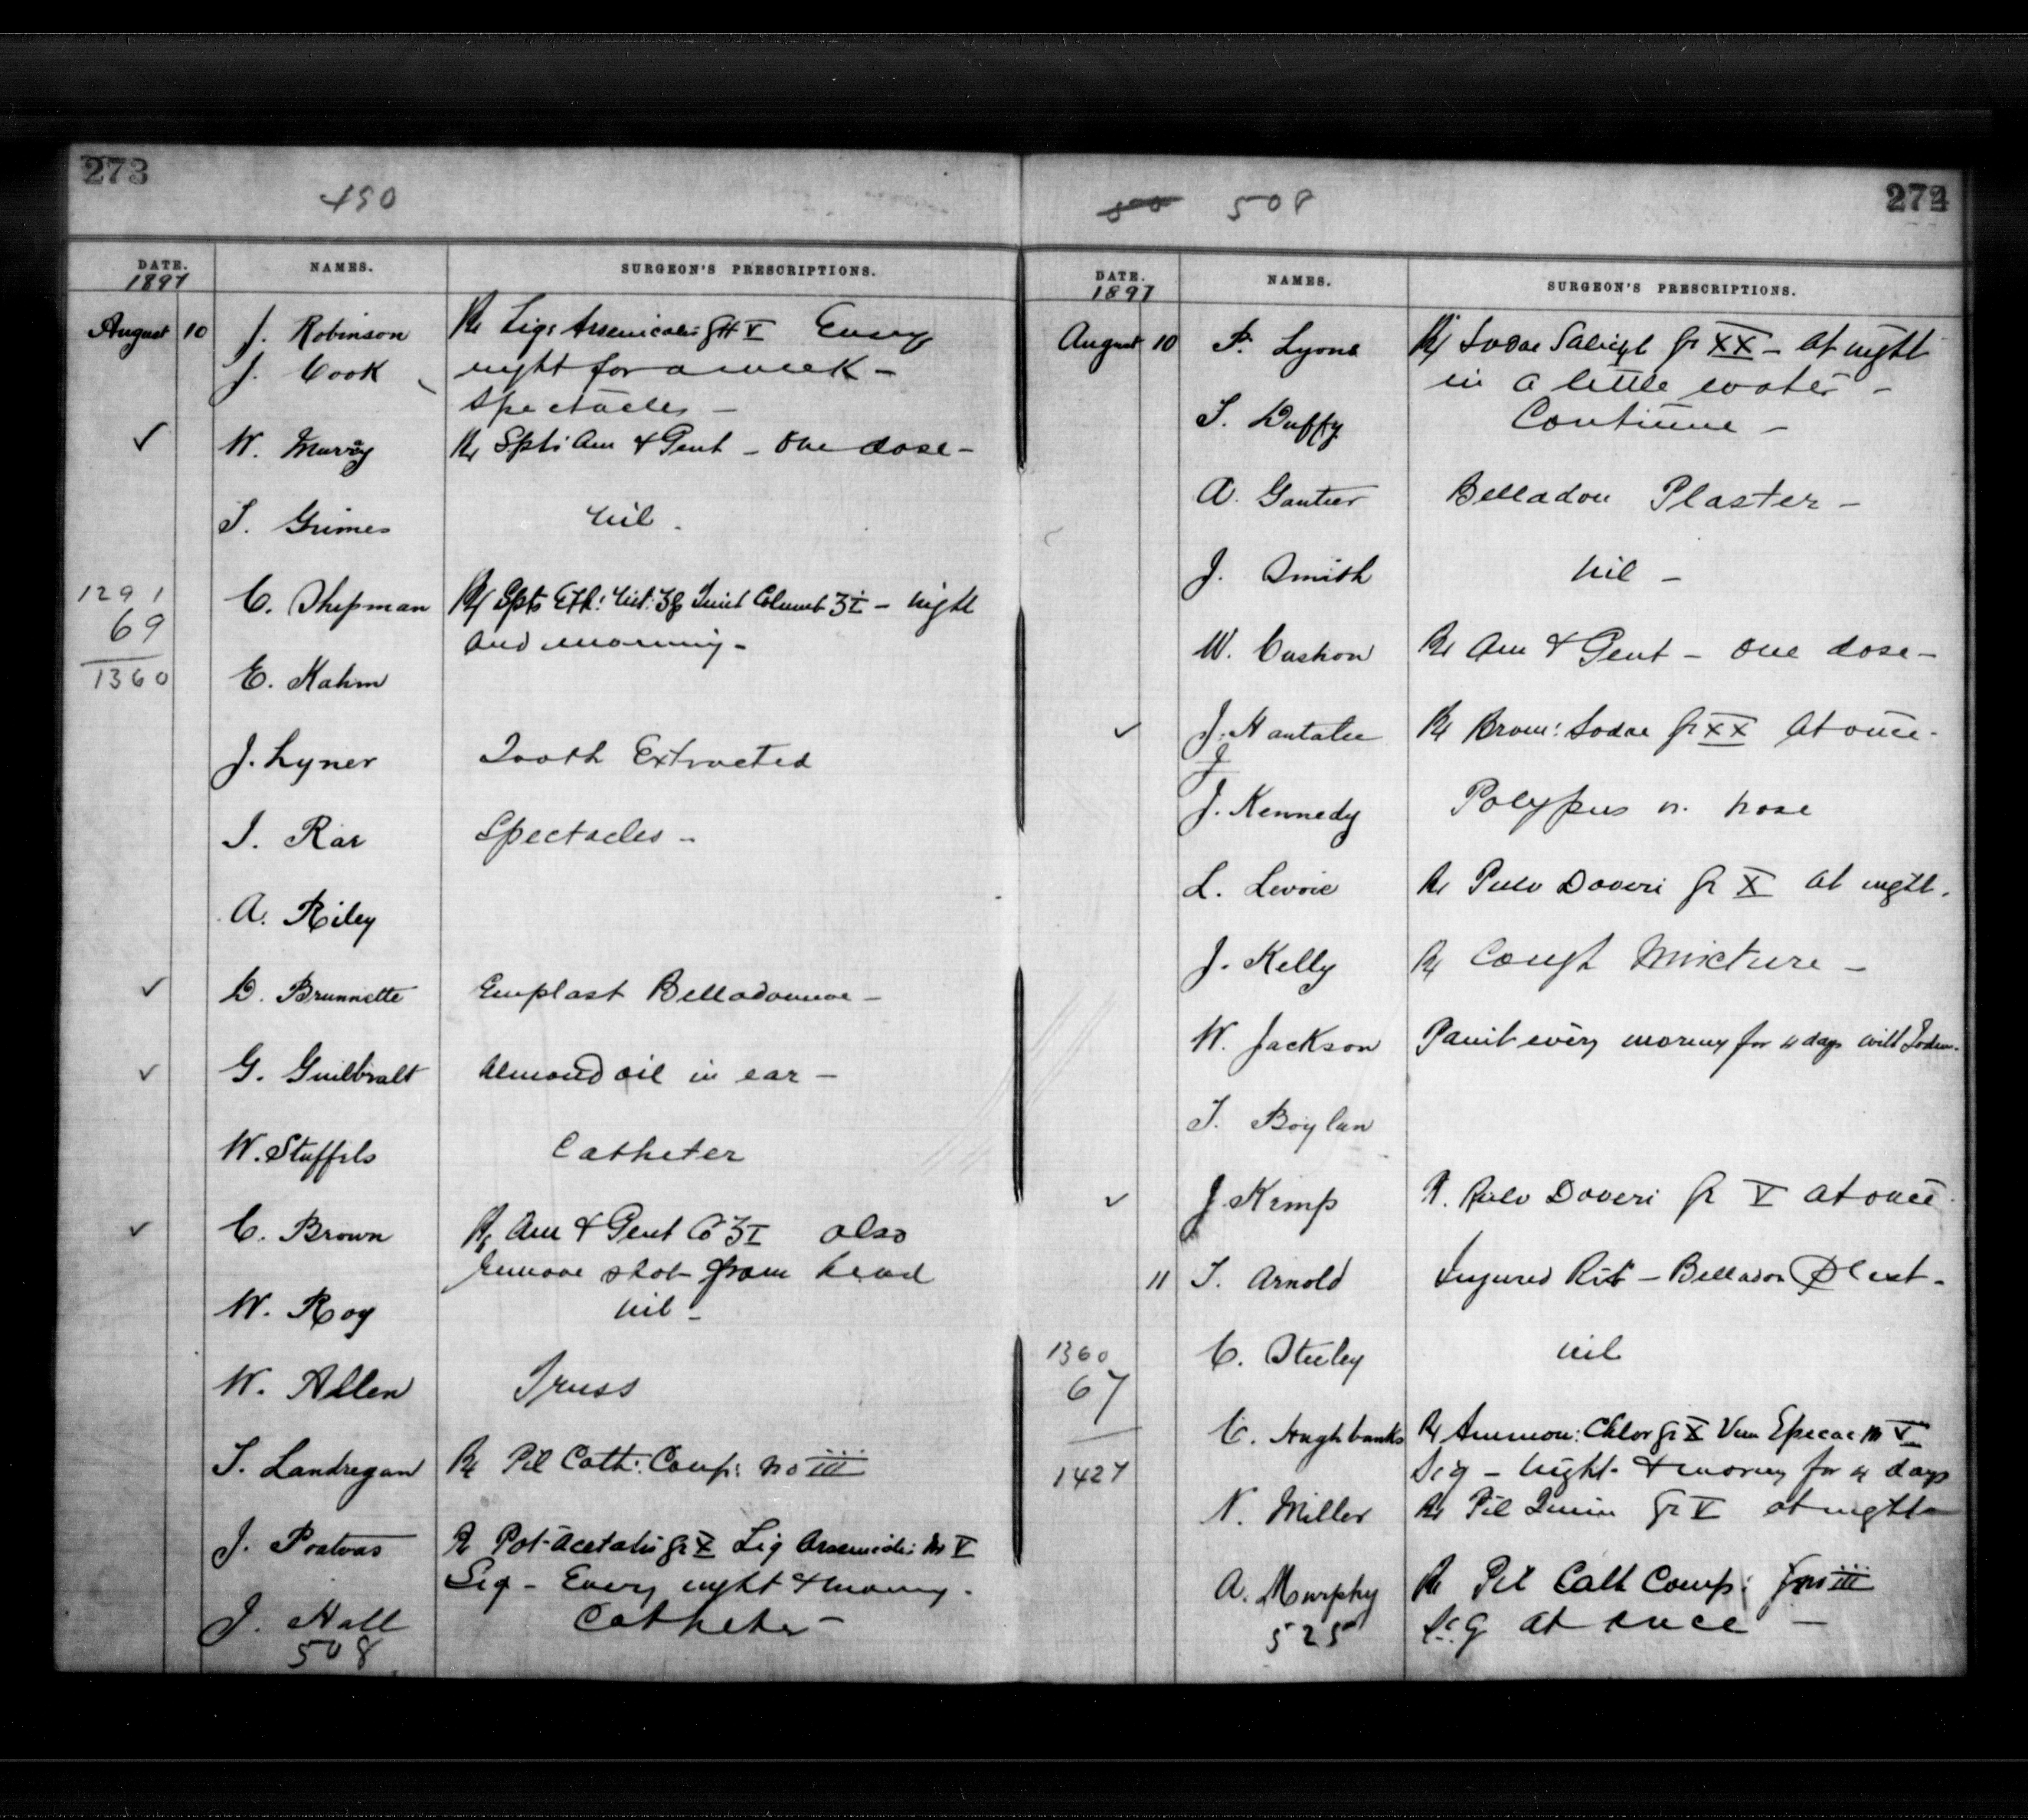 273
490
DATE. NAMES. SURGEON'S PRESCRIPTIONS.
1897
August 10 J. Robinson Rx Liq: Arsenicalis gtt V Every
J. Cook night for a week –
Spectacles –
✓ W. Murray Rx Spts Am & Gent – One dose –
T. Grimes Nil.
1291 C. Shipman Rx Spts Eth: Nit: ʒß Tinct Columb ʒi – night
69 and morning –
1360 E. Kahm
J. Lyner Tooth Extracted
J. Rae Spectacles –
A. Riley
✓ D. Brunnette Emplast Belladonnae –
✓ G. Guilbralt Almond oil in ear –
W. Stuffils Catheter
✓ C. Brown Rx Am & Gent Co ʒI also
remove shot from head
W. Roy Nil –
W. Allen Truss
T. Landregan Rx Pil Cath: Comp: No iii
J. Poatvas Rx Pot-Acetatis gr X Liq Arsenicalis M V
Sig – Every night & morng.
J. Hall Catheter –
508
274
500 508
DATE. NAMES. SURGEON'S PRESCRIPTIONS.
1897
August 10 P. Lyons Rx Sodae Salicyl gr XX – At night
in a little water –
T. Duffy Continue –
A. Gautier Belladon Plaster –
J. Smith Nil –
W. Cushon Rx Am & Gent – One dose –
✓ J. Nantatee Rx Brom: Sodae gr XX At once.
J
J. Kennedy Polypus in nose
L. Levoie Rx Pulv Doveri gr X At night.
J. Kelly Rx Cough Mixture –
W. Jackson Paint every morning for 4 days with Iodin.
T. Boylan
✓ J. Kemp Rx Pulv Doveri gr V At once
11 T. Arnold Injured Rib – Belladon Plast.
1360 C. Steeley Nil
67
C. Hughbanks Rx Ammon: Chlor gr X Vin Epecac M V
Sig – Night & morng for 4 days
1427
N. Miller Rx Pil Quin gr V at night –
A. Murphy Rx Pil Cath Comp: No iii
Sig At once –
525